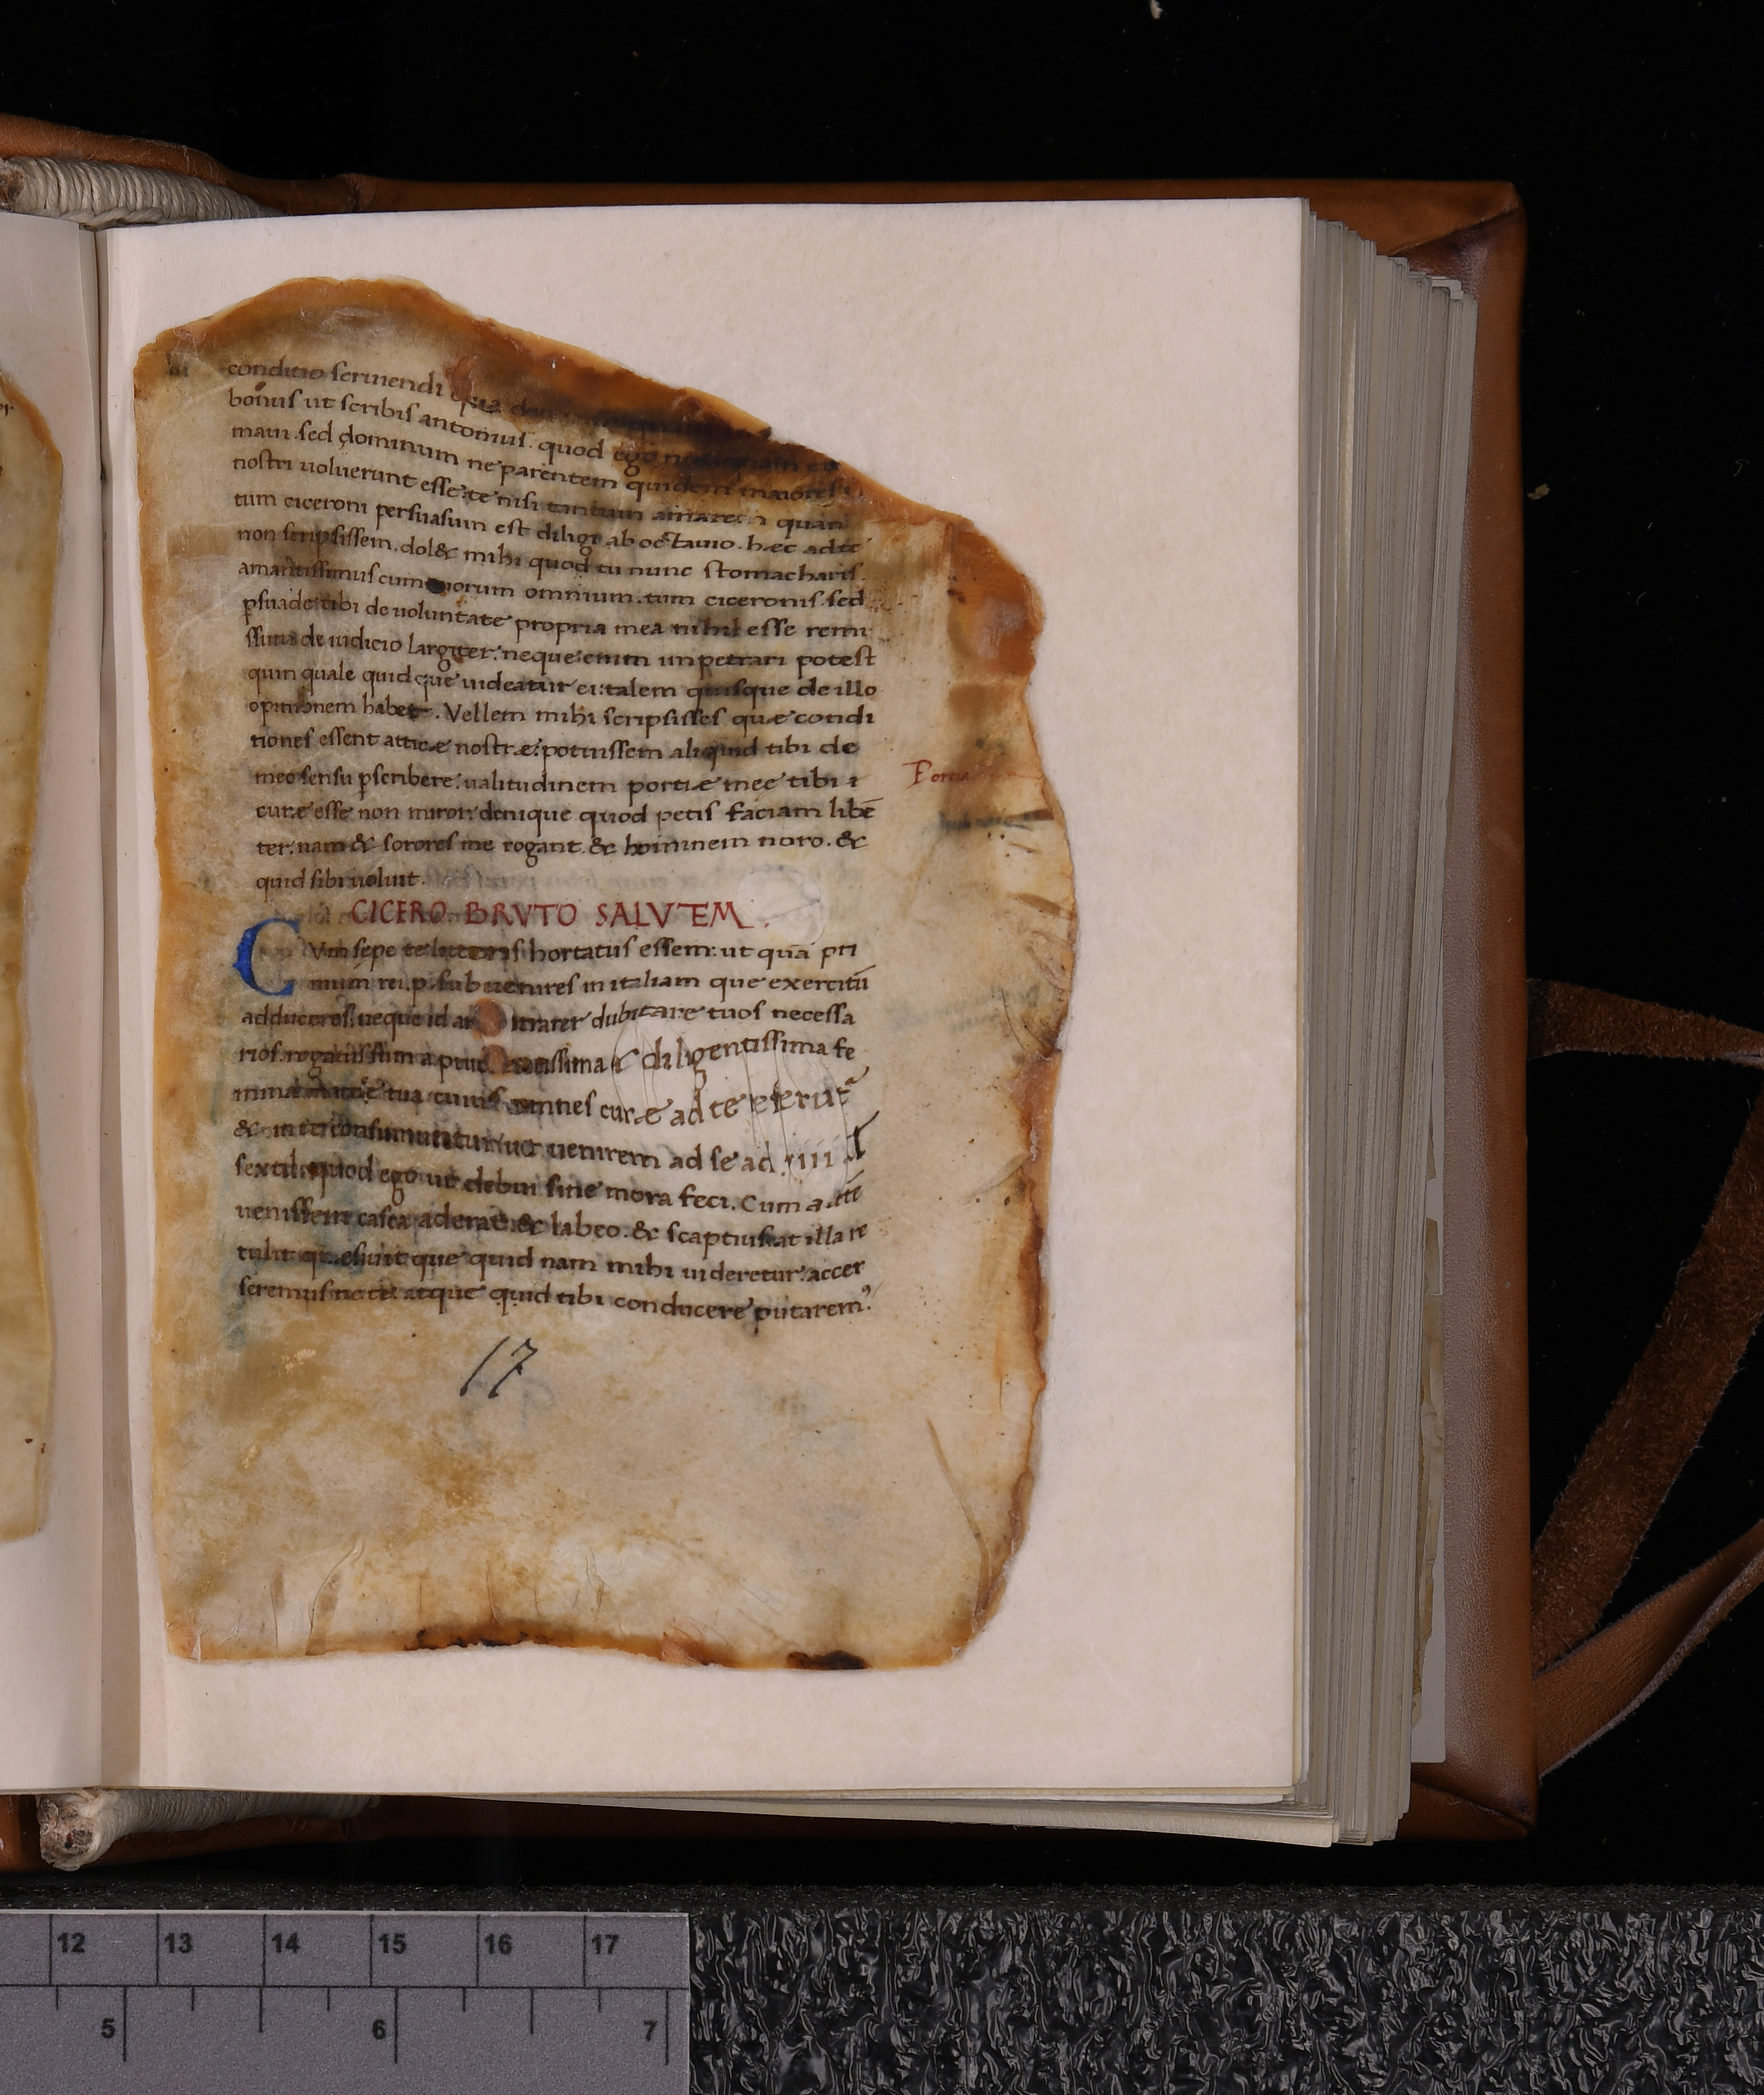 conditio seruiendi
bonus ut scribis antonius. quod ego
mam. sed dominum ne parentem quidem maiores
nostri uoluerunt esse: te nisi tantum amarem quan
tum ciceroni persuasum est diligi ab octauio. hæc ad te
non scripsissem. dol& mihi quod tu nunc stomacharis
amantissimus cum tuorum omnium. tum ciceronis. sed
psuade tibi de uoluntate propria mea nihil esse remi
ssum: de iudicio largiter: neque enim impetrari potest
quin quale quidque uideatur ei: talem quisque de illo
opinionem habet. Vellem mihi scripsisses quæ condi
tiones essent atticæ nostræ: potuissem aliquid tibi de
meo sensu pscribere: ualitudinem portiæ meę tibi
Portia
curæ esse non miror: denique quod petis faciam libē
ter: nam & sorores me rogant. & hominem noro. &
quid sibi uoluit.
CICERO BRVTO SALVTEM.
CVm sepe te litteris hortatus essem: ut quā pri
mum rei. p. subuenires in italiam que exercitū
adduceres: neque id ar itrarer dubitare tuos necessa
rios. rogatus sum a prud entissima & diligentissima fe
mina matre tua cuius omnes curæ ad te
& consumuntur: ut uenirem ad se ad. iiii
sextil. quod ego ut debui sine mora feci. Cum autē
uenissem casca aderat. & labeo. & scaptius. at illa re
tulit quesiuit que quid nam mihi uideretur: accer
seremus ne te: atque quid tibi conducere putarem?
17